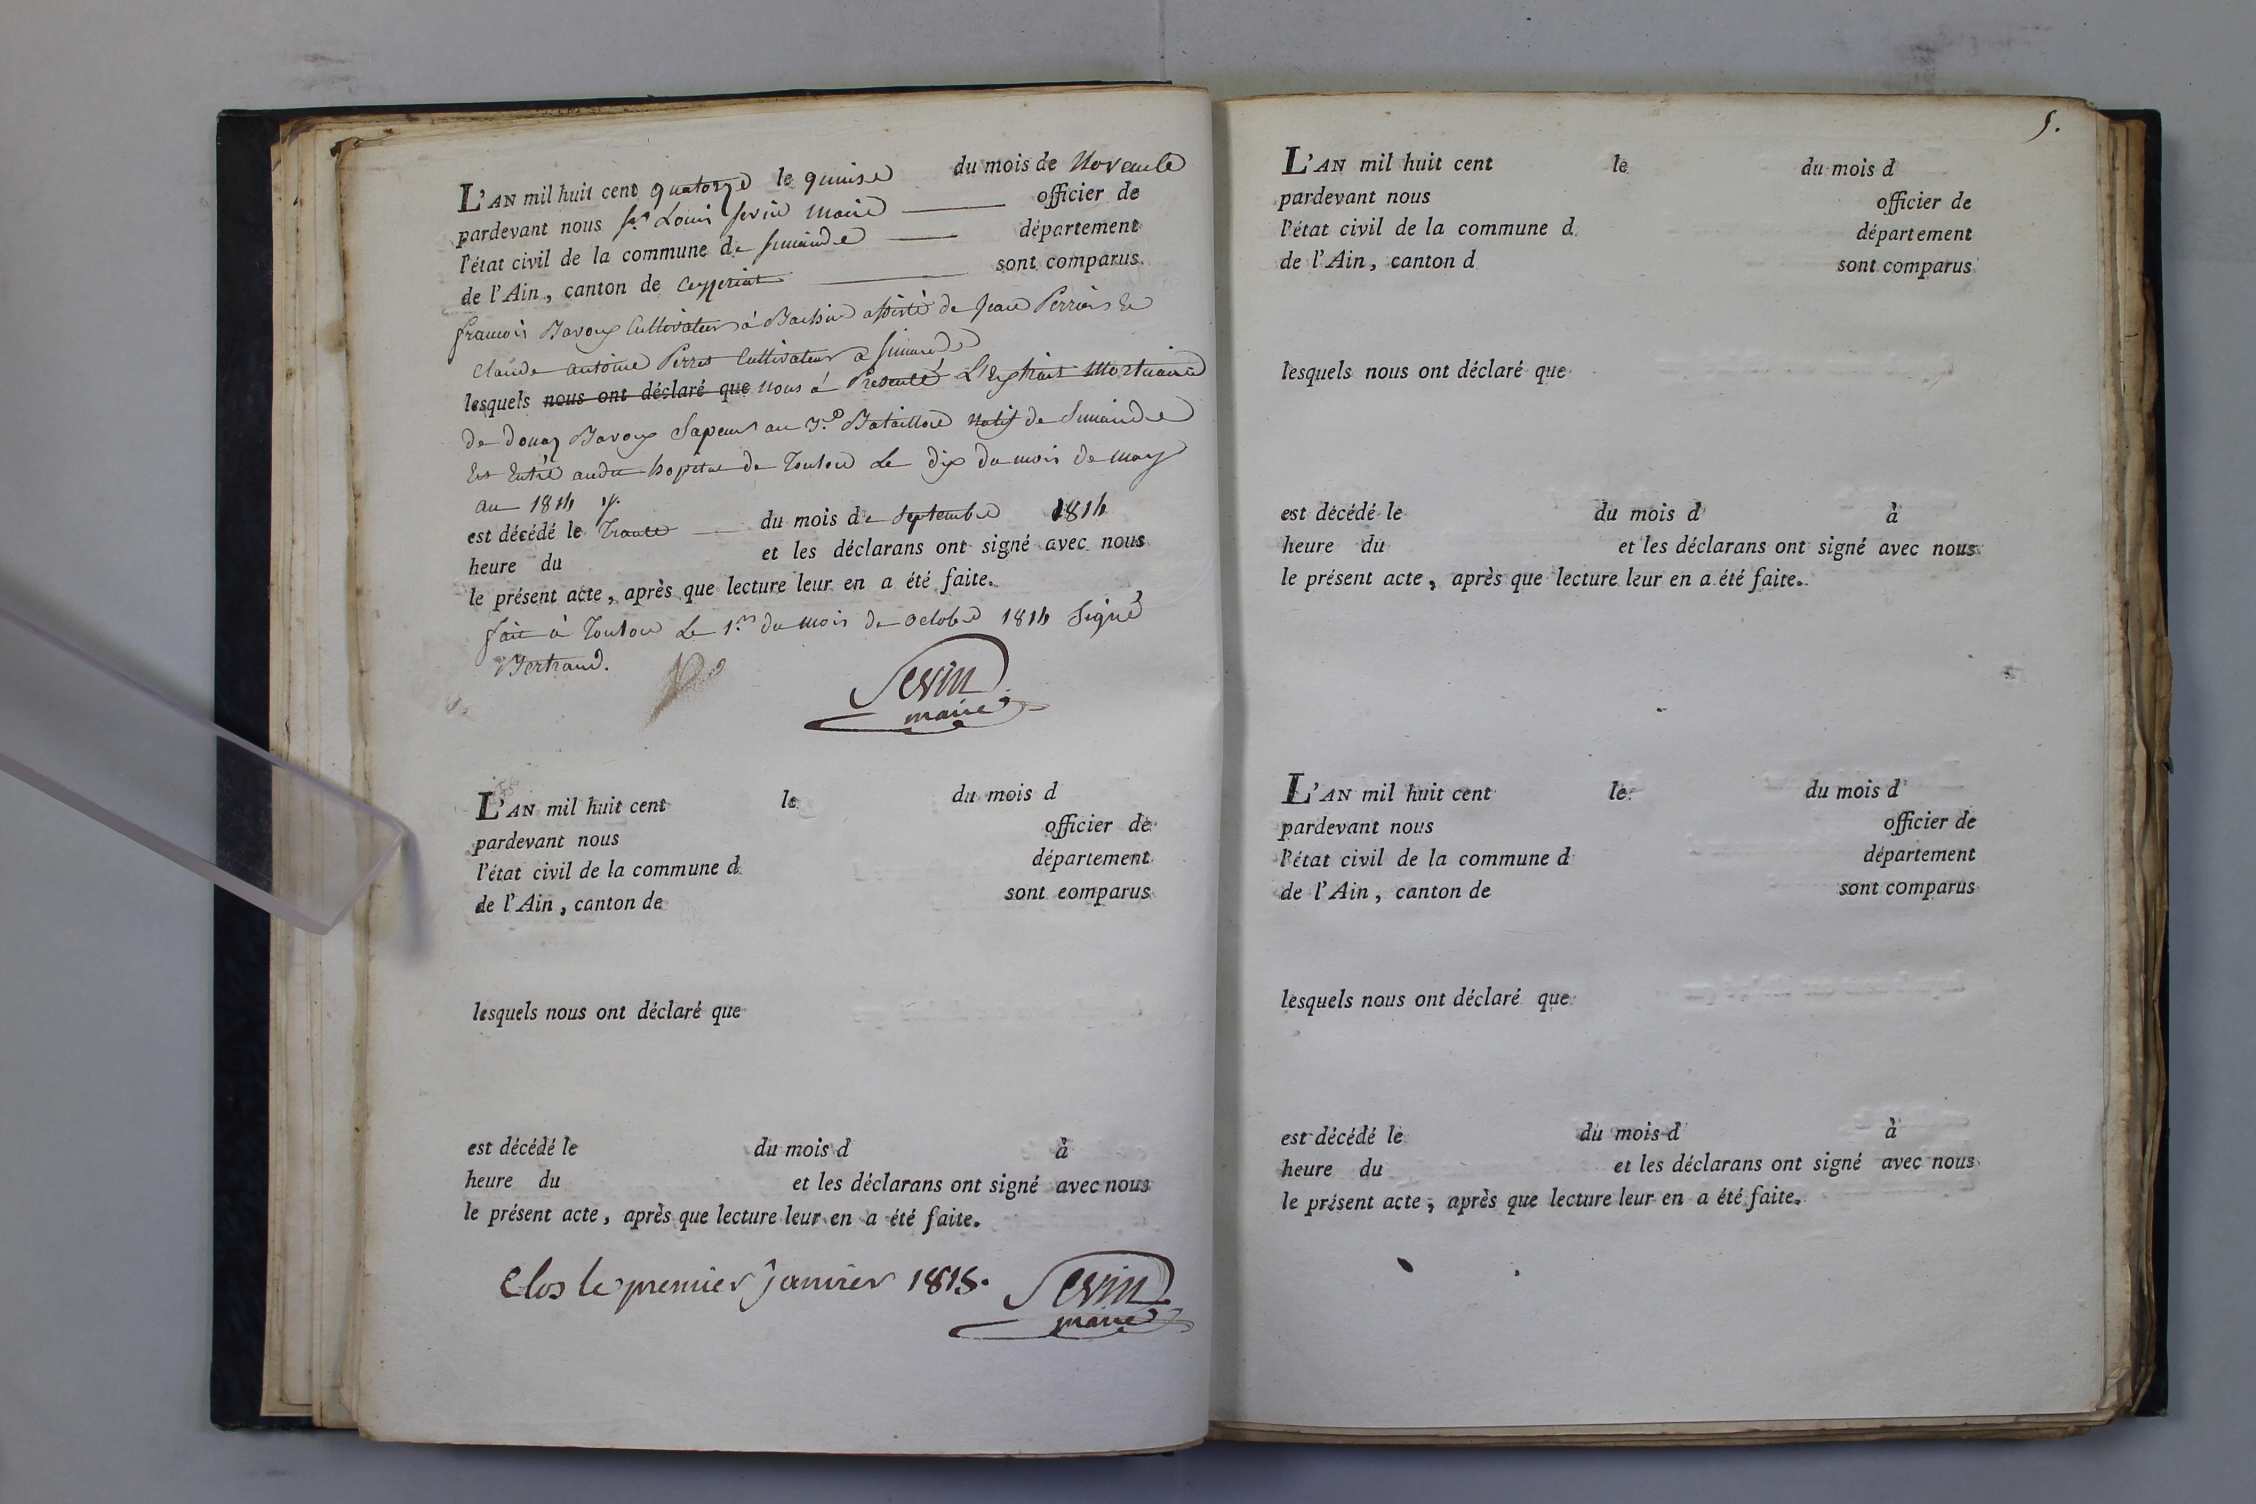 L'AN mil huit cent quatorze le quinse du mois de Novembre
pardevant nous sr Louis Sevin Maire officier de
l'état civil de la commune de Simandre département
de l'Ain, canton de Ceyzeriat sont comparus
françois Bavoux Cultivateur à assisté de Jean Perrier Et
Claude antoine Perret Cultivateur a Simandre
lesquels nous ont déclaré que nous à Presenté L'Extrait Mortuaire
de Bavoux Sapeur au 3.e Bataillon Natif de Simandre
Est Entré audit hopital de Toulon Le dix du mois de may
an 1814
est décédé le Trante du mois de Septembre 1814
heure du et les déclarans ont signé avec nous
le présent acte, après que lecture leur en a été faite.
fait à Toulon Le 1.er du mois de octobre 1814 Signé
Bertrand.
Sevin
maire
L'AN mil huit cent le du mois d
pardevant nous officier de
l'état civil de la commune d département
de l'Ain, canton de sont comparus
lesquels nous ont déclaré que
est décédé le du mois d à
heure du et les déclarans ont signé avec nous
le présent acte, après que lecture leur en a été faite.
Clos le premier janvier 1815.
Sevin
maire
5.
L'AN mil huit cent le du mois d
pardevant nous officier de
l'état civil de la commune d département
de l'Ain, canton d sont comparus
lesquels nous ont déclaré que
est décédé le du mois d à
heure du et les déclarans ont signé avec nous
le présent acte, après que lecture leur en a été faite.
L'AN mil huit cent le du mois d
pardevant nous officier de
l'état civil de la commune d département
de l'Ain, canton de sont comparus
lesquels nous ont déclaré que
est décédé le du mois d à
heure du et les déclarans ont signé avec nous
le présent acte, après que lecture leur en a été faite.